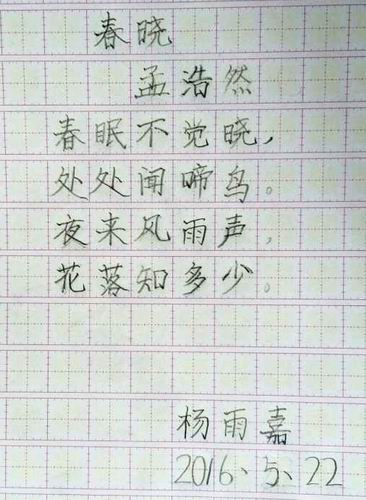 春晓
孟浩然
春眠不觉晓,
处处闻啼鸟。
夜来风雨声,
花落知多少。
杨雨嘉
2016、5、22